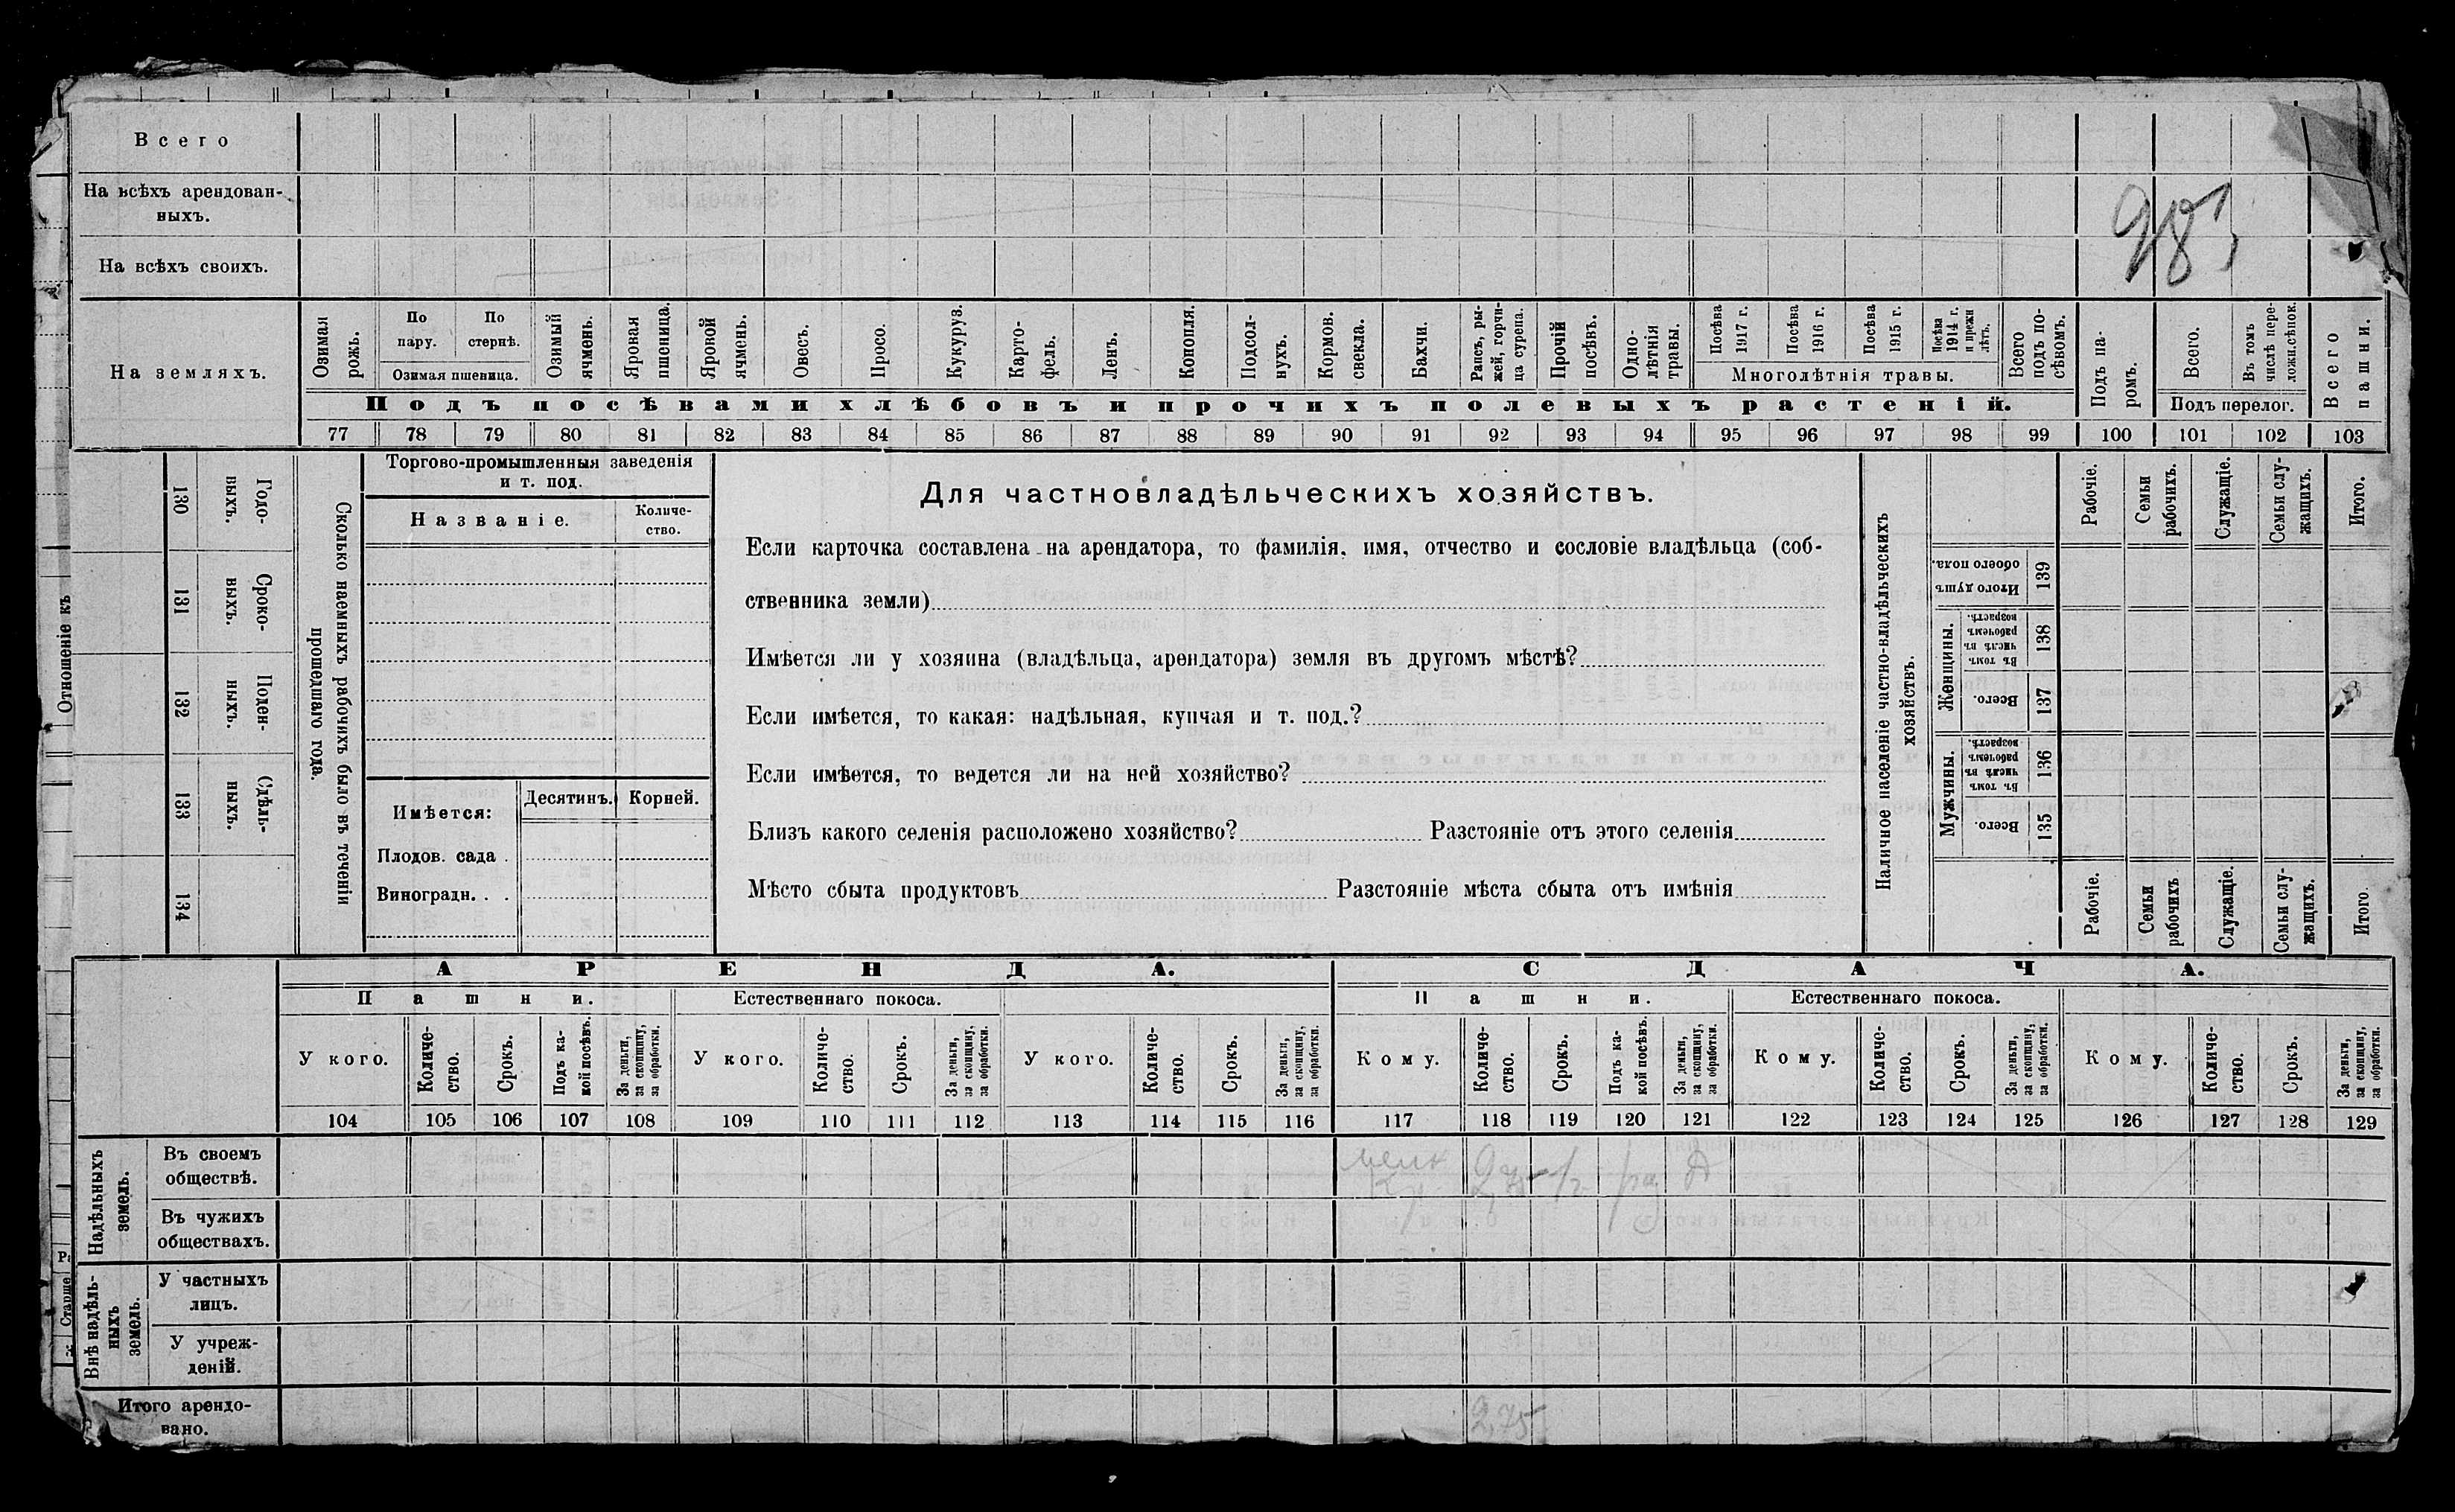 Всего
На всѣхъ арендован-
ныхъ.
На всѣхъ своихъ.
На земляхъ.
Озимая рожь.
По пару.
По стернѣ.
Озимая пшеница.
Озимый ячмень.
Яровая пшеница.
Яровой ячмень.
Овесъ.
Просо.
Кукуруз.
Карто-
фель.
Ленъ.
Конопля.
Подсол-
нухъ.
Кормов.
свекла.
Бахчи.
Рапсъ, ры-
жей, горчи-
ца сурепа.
Прочій
посѣвъ.
Одно-
лѣтнія
травы.
Посѣва
1917 г.
Посѣва
1916 г.
Посѣва
1915 г.
Посѣва
1914 г.
и прежн
лѣтъ.
Многолѣтнія травы.
Всего
подъ по-
сѣвомъ.
Подъ па-
ромъ.
Всего.
Въ томъ
числѣ пере-
ложн.сѣнок.
Подъ перелог.
Всего
пашни.
Подъ посѣвами хлѣбовъ и прочихъ полевыхъ растеній.
77 78 79 80 81 82 83 84 85 86 87 88 89 90 91 92 93 94 95 96 97 98 99 100 101 102 103
983
Отношеніе къ
130 Годо-
выхъ.
131 Сроко-
выхъ.
132 Поден-
ныхъ.
133 Сдѣль-
ныхъ.
134
Сколько наемныхъ рабочихъ было въ теченіи
прошедшаго года.
Торгово-промышленныя заведенія
и т. под.
Названіе.
Количе-
ство.
Имѣется:
Десятинъ.
Корней.
Плодов. сада .
Виноградн. . .
Для частновладѣльческихъ хозяйствъ.
Если карточка составлена на арендатора, то фамилія, имя, отчество и сословіе владѣльца (соб-
ственника земли)
Имѣется ли у хозяина (владѣльца, арендатора) земля въ другомъ мѣстѣ?
Если имѣется, то какая: надѣльная, купчая и т. под.?
Если имѣется, то ведется ли на ней хозяйство?
Близъ какого селенія расположено хозяйство? Разстояніе отъ этого селенія
Мѣсто сбыта продуктовъ Разстояніе мѣста сбыта отъ имѣнія
Наличное населеніе частно-владѣльческихъ
хозяйствъ.
Рабочіе.
Семьи
рабочихъ.
Служащіе.
Семьи слу-
жащихъ.
Итого.
Итого душъ
обоего пола.
139
Женщины.
Въ томъ
числѣ въ
рабочемъ
возрастѣ.
138
Всего.
137
Мужчины.
Въ томъ
числѣ въ
рабочемъ
возрастѣ.
136
Всего.
135
Рабочіе.
Семьи
рабочихъ
Служащіе.
Семьи слу-
жащихъ.
Итого.
АРЕНДА.
СДАЧА.
Пашни.
Естественнаго покоса.
Пашни.
Естественнаго покоса.
У кого.
Количе-
ство.
Срокъ.
Подъ ка-
кой посѣвъ.
За деньги,
за скопщину,
за обработки.
У кого.
Количе-
ство.
Срокъ.
За деньги,
за скопщину,
за обработки.
У кого.
Количе-
ство.
Срокъ.
За деньги,
за скопщину,
за обработки.
Кому.
Количе-
ство.
Срокъ.
Подъ ка-
кой посѣвъ.
За деньги,
за скопщину,
за обработки.
Кому.
Количе-
ство.
Срокъ.
За деньги,
за скопщину,
за обработки.
Кому.
Количе-
ство.
Срокъ.
За деньги,
за скопщину,
за обработки.
104 105 106 107 108 109 110 111 112 113 114 115 116 117 118 119 120 121 122 123 124 125 126 127 128 129
Надѣльныхъ
земель.
Въ своемъ
обществѣ.
2,75
Въ чужихъ
обществахъ.
Внѣ надѣль-
ныхъ
земель.
У частныхъ
лицъ.
У учреж-
деній.
Итого арендо-
вано.
2,75
Старше